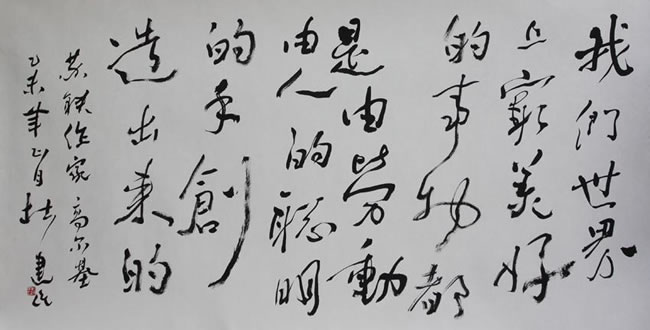 我們世界
上最美好
的事物都
是由勞動
由人的聪明
的手創
造出来的
苏联作家高尔基
乙未年